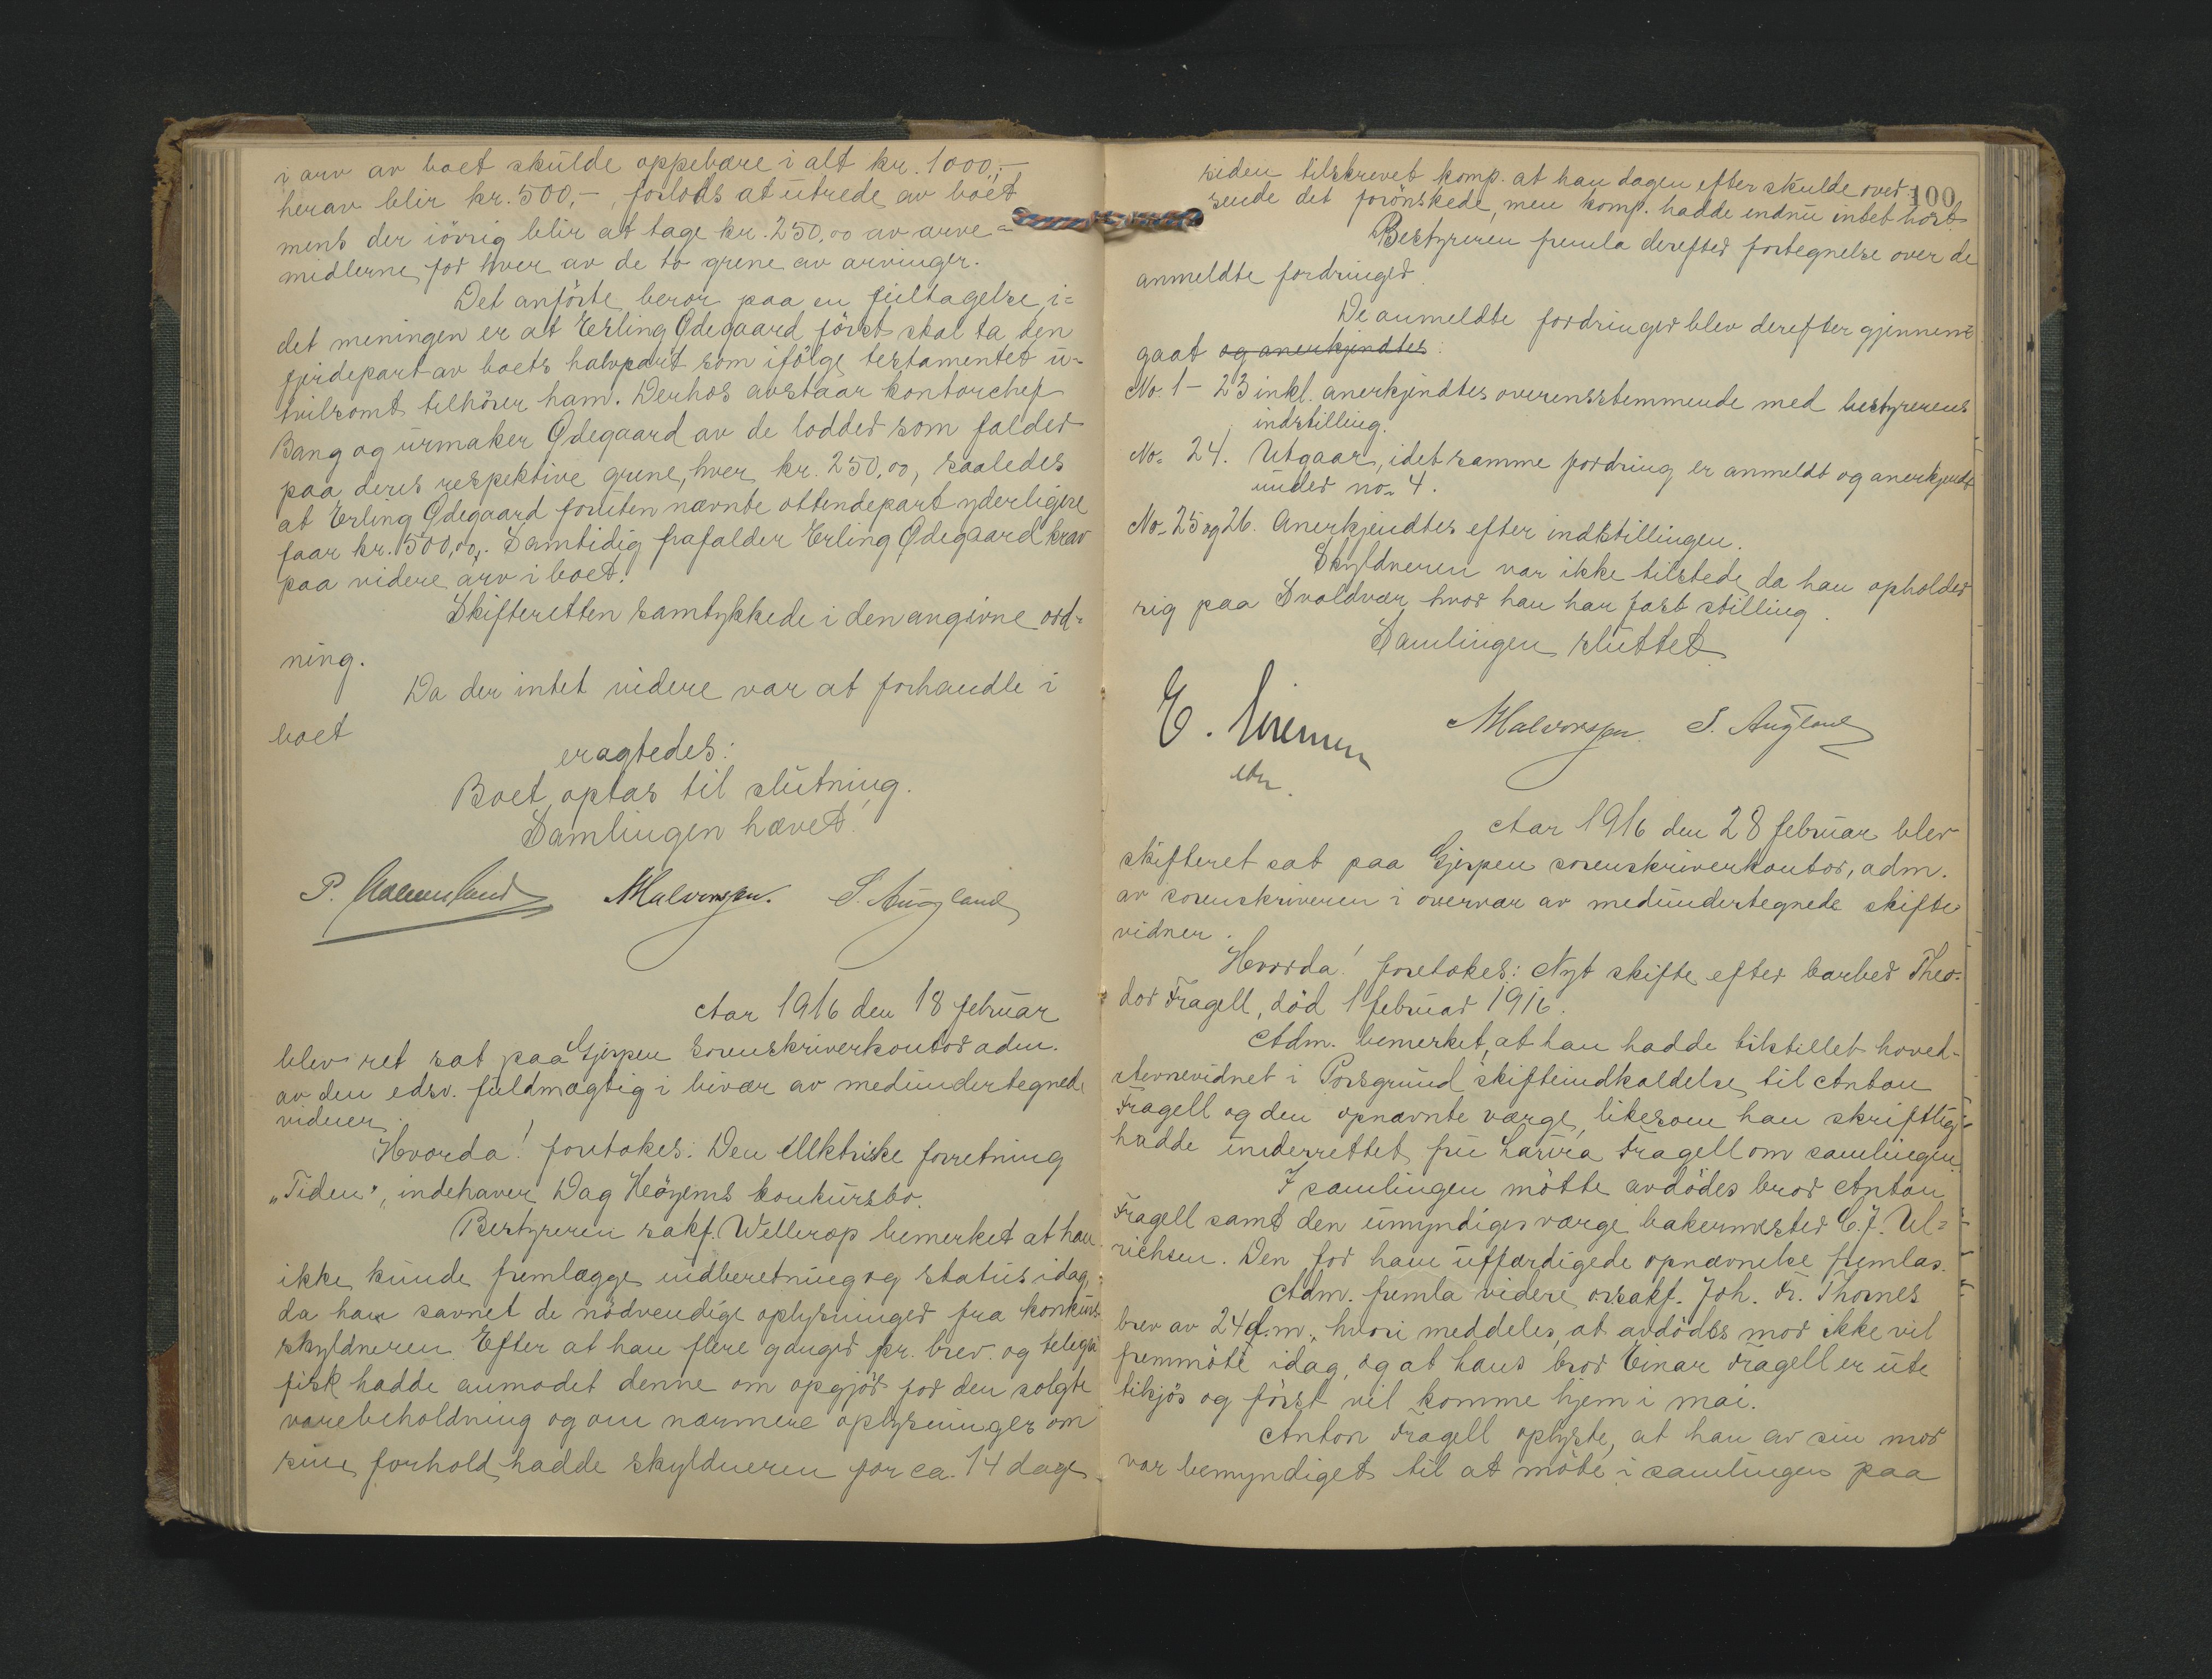 i arv av boet skulde oppebære i alt kr. 1000,-
herav blir kr. 500,-, forlods at utrede av boet
mens der iövrig blir at tage kr. 250,00 av arve=
midlerne for hver av de to grene av arvinger.
Det anförte beror paa en feiltagelse, i=
det meningen er at Erling Ödegaard först skal ta den
fjerdepart av boets halvpart som ifölge testamentet u=
tvilsomt tilhörer ham. Derhos avstaar kontorchef
Bang og urmaker Ödegaard av de lodder som falder
paa deres respektive grene, hver kr. 250,00, saaledes
at Erling Ödegaard foruten nævnte ottendepart yderligere
faar kr. 500,00,. Samtidig frafalder Erling Ödegaard krav
paa videre arv i boet.
Skifteretten samtykkede i den angivne ord=
ning.
Da der intet videre var at forhandle i
boet
eragtedes:
Boet optas til slutning.
Samlingen hævet.
P. NHalvorsen. S. Augland
Aar 1916 den 18 februar
blev ret sat paa Gjerpen sorenskriverkontor adm.
av den edsv. fuldmægtig i bivær av medundertegnede
vidner.
Hvorda! foretokes: Den ellektriske forretning
„Tiden", indehaver Dag Höyems konkursbo.
Bestyreren sakf. Wellerop bemerket at han
ikke kunde fremlægge indberetning og status idag,
da han savnet de nödvendige oplysninger fra konkurs
skyldneren. Efter at han flere ganger pr. brev. og telegra
fisk hadde anmodet denne om opgjör for den solgte
varebeholdning og om nærmere oplysninger om
sine forhold, hadde skyldneren for ca. 14 dage
100
siden tilskrevet komp. at han dagen efter skulde over=
sende det forönskede, men komp. hadde endnu intet hört
Bestyreren fremla derefter fortegnelse over de
anmeldte fordringer.
De anmeldte fordringer blev derefter gjennem=
gaat og anerkjendtes:
No. 1 - 23 inkl. anerkjendtes overensstemmende med bestyrerens
indstilling.
No. 24. Utgaar, idet samme fordring er anmeldt og anerkjendt
under no. 4.
No. 25 og 26. Anerkjendtes efter indstillingen.
Skyldneren var ikke tilstede, da han opholder
sig paa Svoldvær, hvor han har fast stilling.
Samlingen sluttet.
E. NHalvorsen. S. Augland
Aar 1916 den 28 februar blev
skifteret sat paa Gjerpen sorenskriverkontor, adm.
av sorenskriveren i overvær av medundertegnede skifte
vidner.
Hvorda! foretokes: Nyt skifte efter barber Theo-
dor Fragell, död 1 februar 1916.
Adm. bemerket, at han hadde tilstillet hoved-
stevnevidnet i Porsgrund skifteindkaldelse til Anton
Fragell og den opnævnte værge, likesom han skriftlig
hadde underrettet fru Laura Fragell om samlingen.
I samlingen mötte avdödes bror Anton
Fragell samt den umyndiges værge bakermester C. J. Ul=
richsen. Den for ham utfærdigede opnævnelse fremlas.
Adm. fremla videre orsakf. Joh. Fr. Thornes
brev av 24 d.m., hvori meddeles, at avdödes mor ikke vil
fremmöte idag, og at hans bror Einar Fragell er ute
tilsjös og först vil komme hjem i mai.
Anton Fragell oplyste, at han av sin mor
var bemyndiget til at möte i samlingen paa